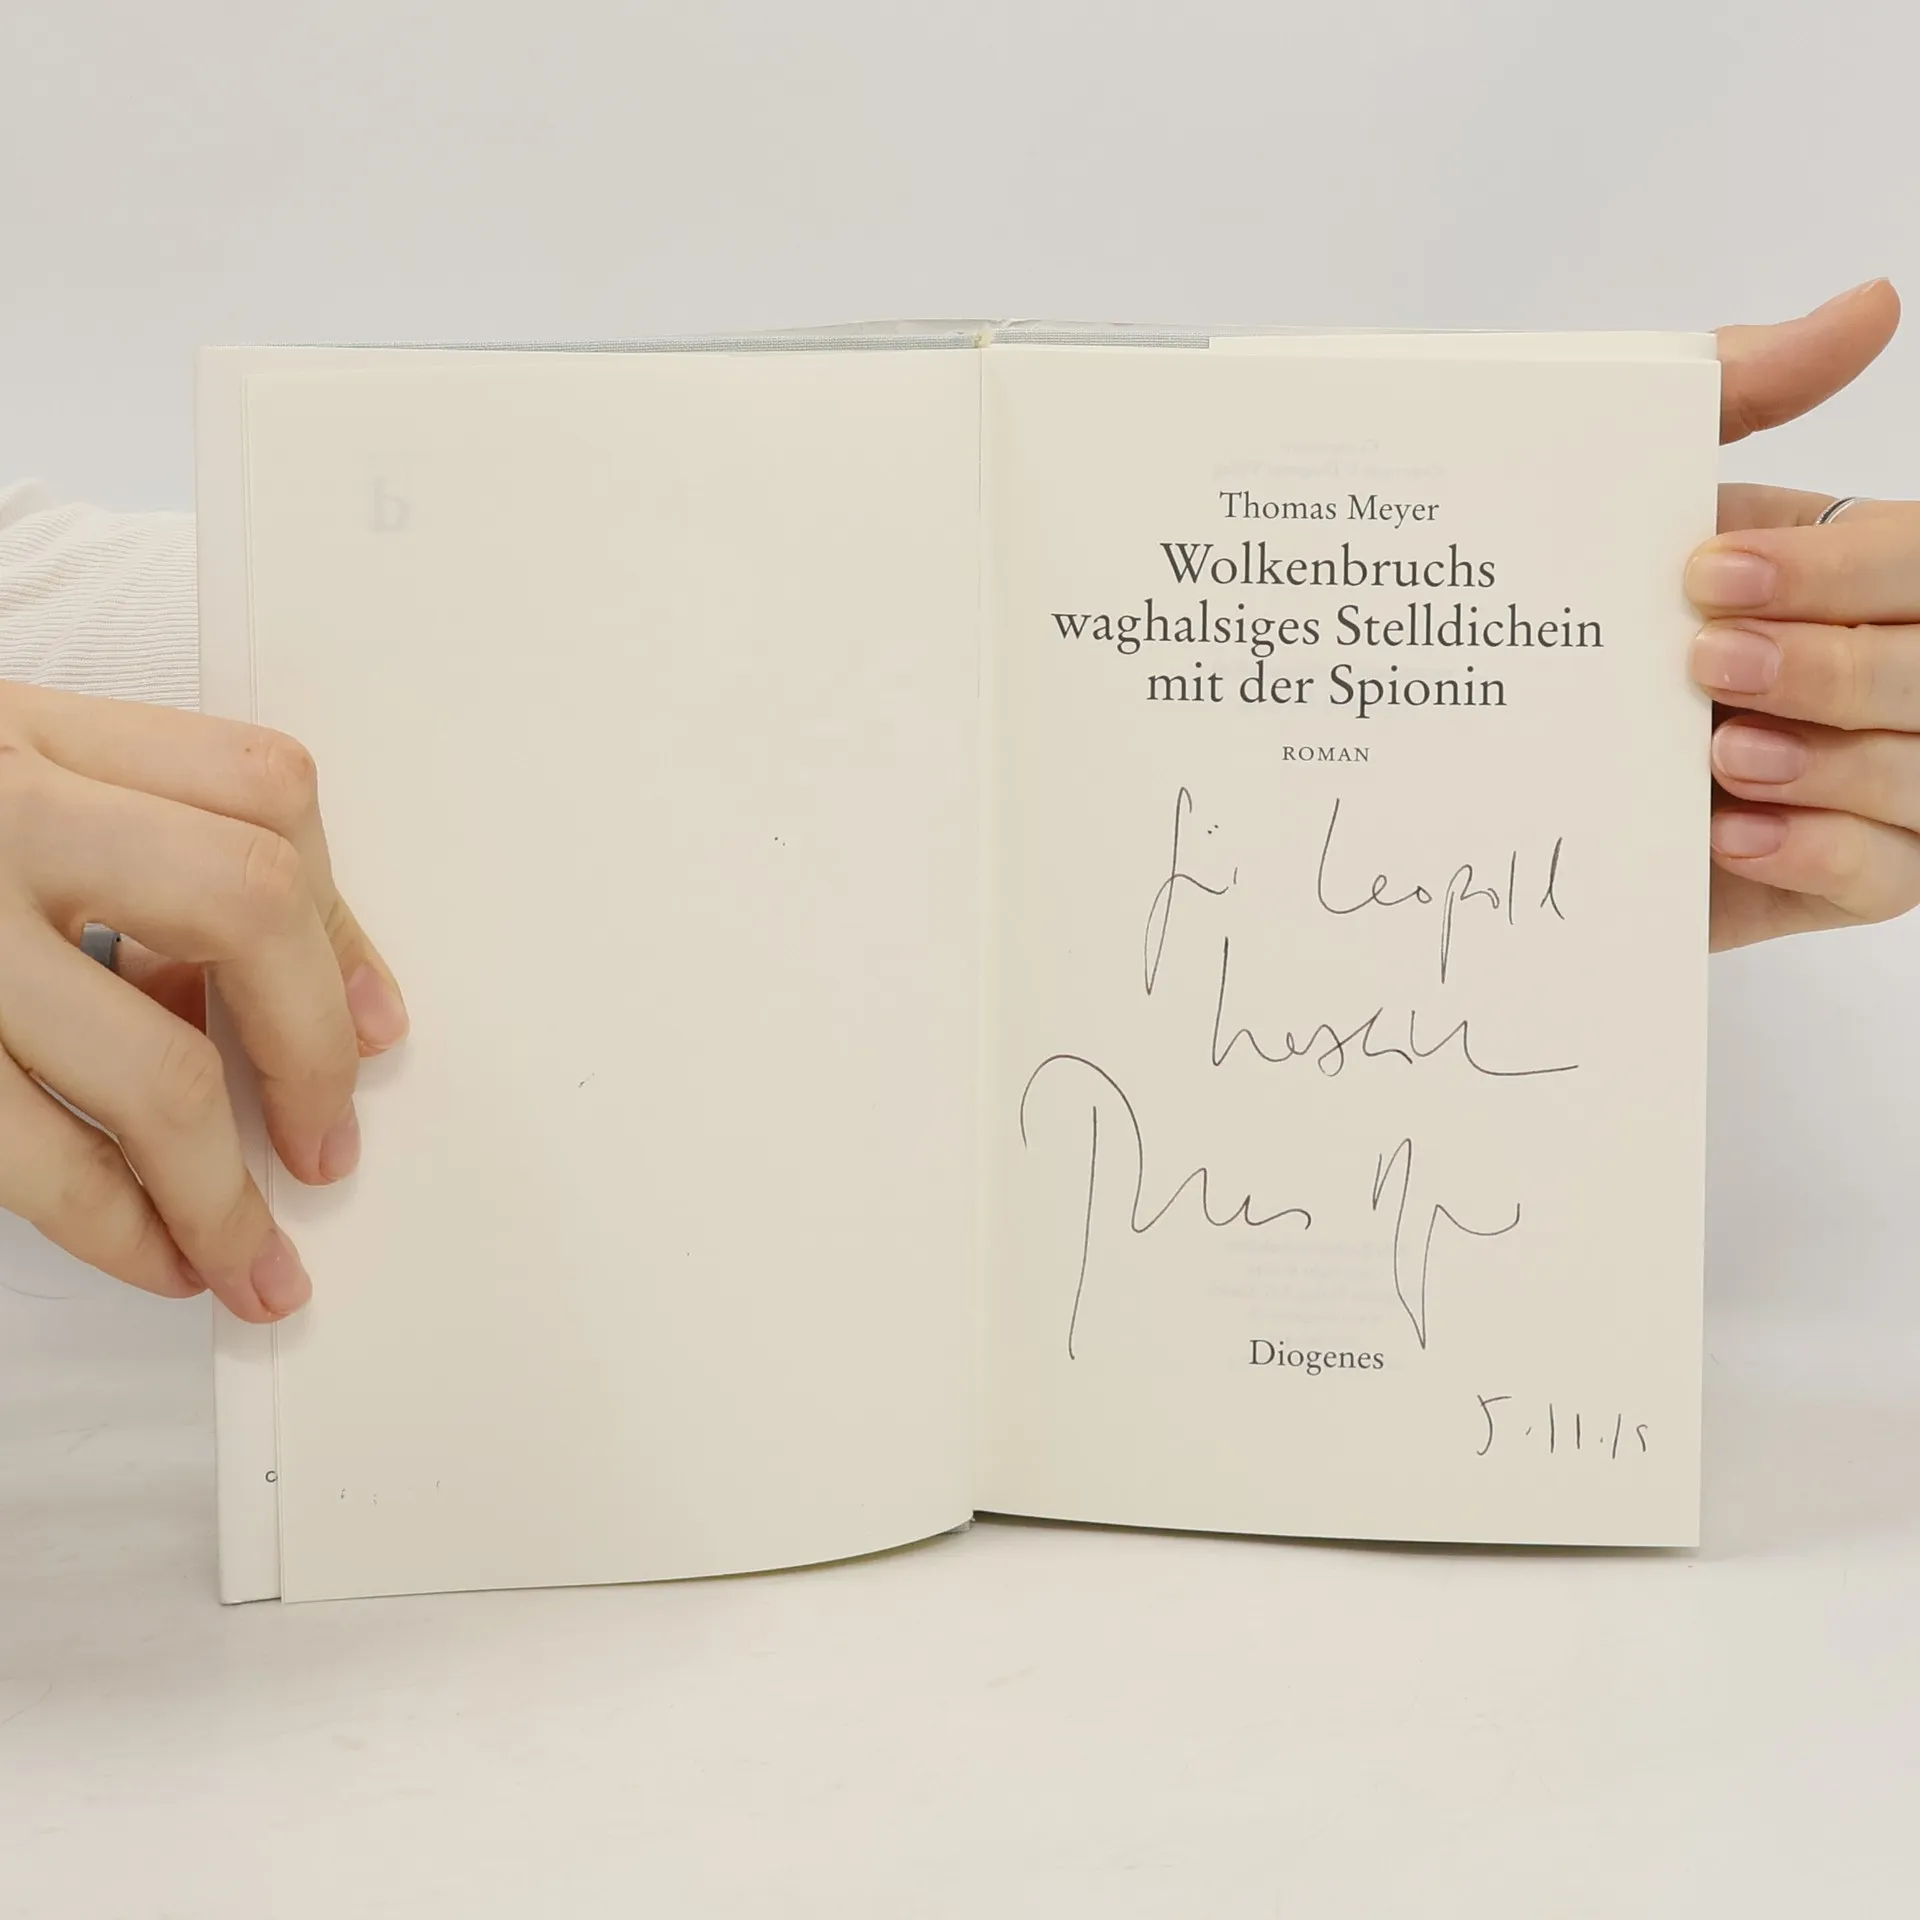 Thomas Meyer
Wolkenbruchs
waghalsiges Stelldichein
mit der Spionin
ROMAN
für Leopold
herzlich
Thomas Meyer
Diogenes
5.11.19